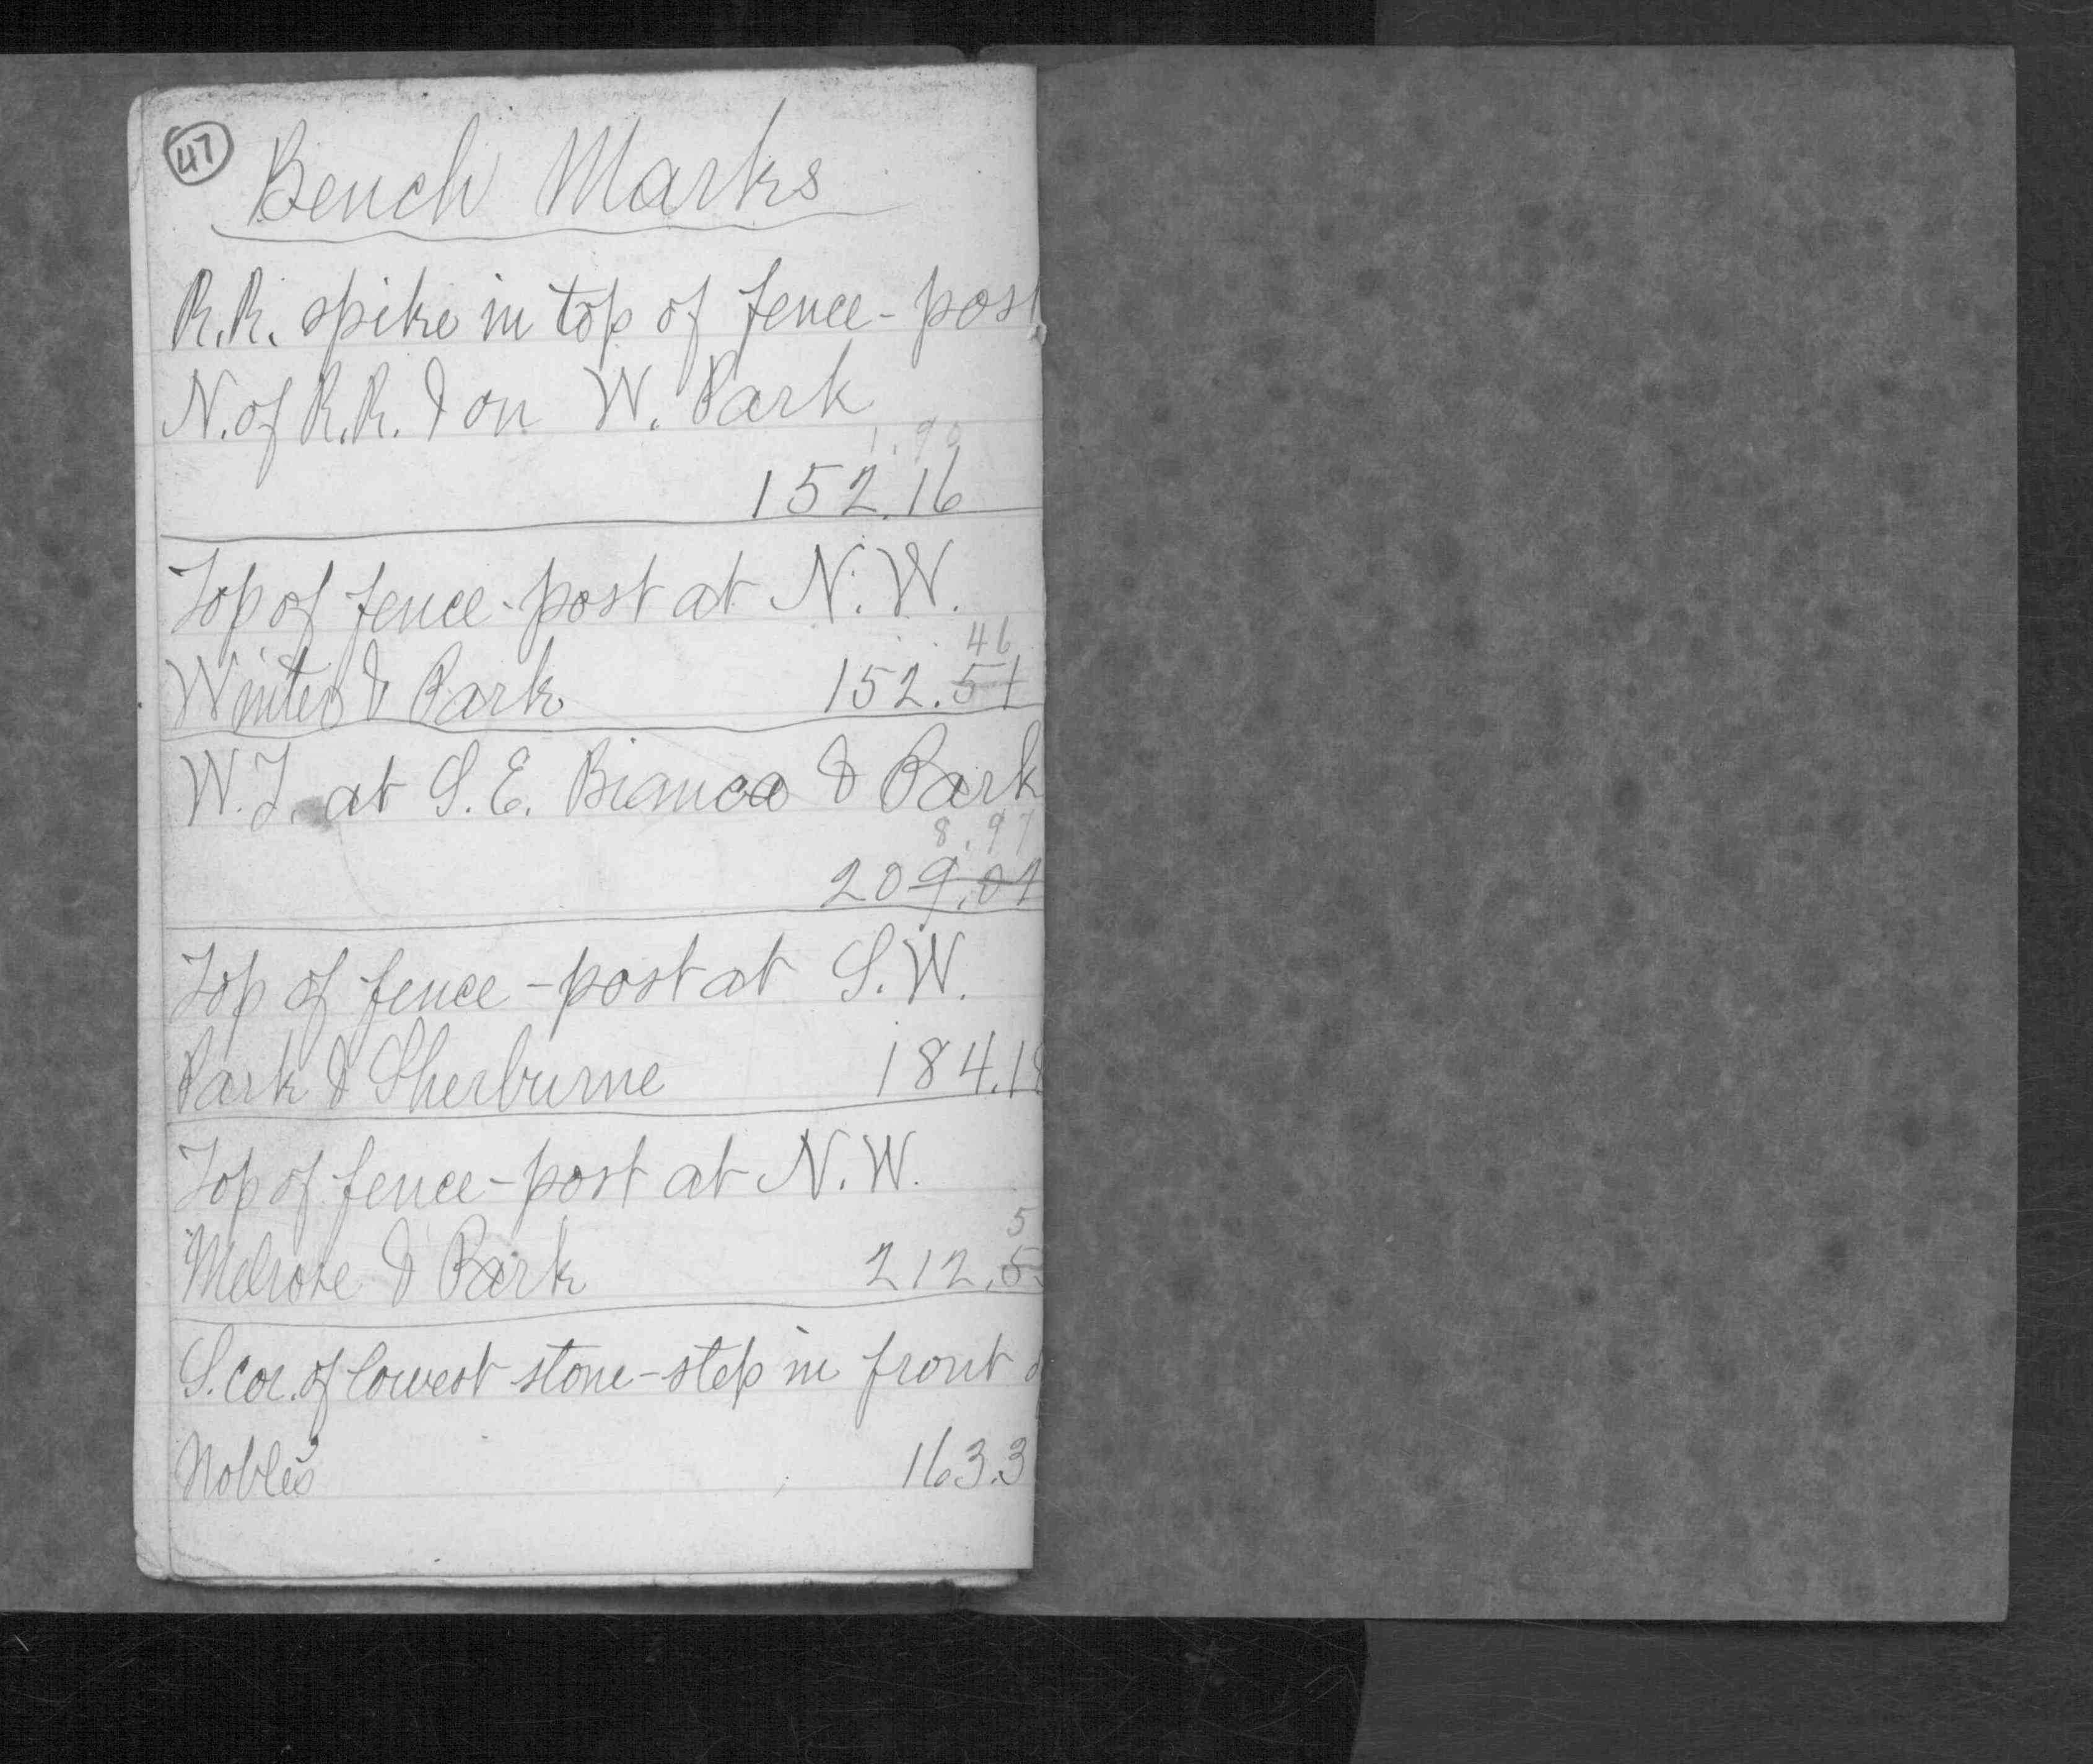 47
Bench Marks
R.R. spike in top of fence-post
N. of R.R. & on W. Park
1.90
152.16
Top of fence-post at N.W.
46
Winter & Park 152.51
W.T. at S.E. Bianca & Park
8.97
209.01
Top of fence-post at S.W.
Park & Sherburne 184.18
Top of fence-post at N.W.
5
Melrose & Park 212.5
S. cor. of lowest stone-step in front
Nobles 163.3